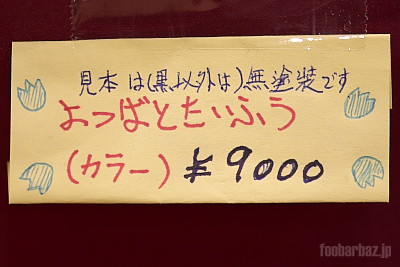 見本は(黒以外は)無塗装です
よつばとたいふう
(カラー) ¥9000
foobarbaz.jp